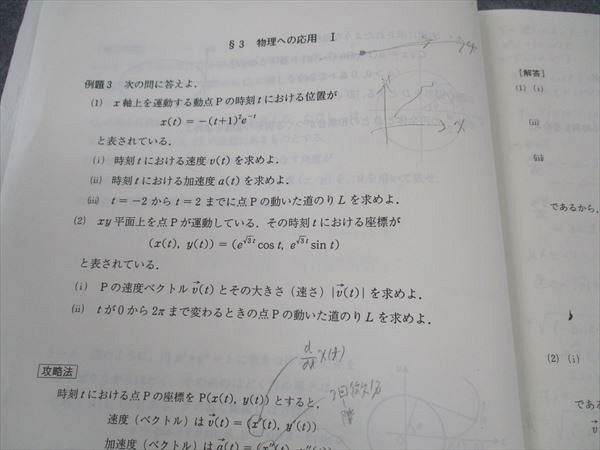 §3 物理への応用 I
例題3 次の問に答えよ.
(1) x軸上を運動する動点Pの時刻tにおける位置が
x(t)=-(t+1)²e⁻ᵗ
と表されている.
(i) 時刻tにおける速度v(t)を求めよ.
(ii) 時刻tにおける加速度a(t)を求めよ.
(iii) t=-2からt=2までに点Pの動いた道のりLを求めよ.
(2) xy平面上を点Pが運動している. その時刻tにおける座標が
(x(t), y(t))=(e^{√3t}cos t, e^{√3t}sin t)
と表されている.
(i) Pの速度ベクトルv⃗(t)とその大きさ（速さ）|v⃗(t)|を求めよ.
(ii) tが0から2πまで変わるときの点Pの動いた道のりLを求めよ.
d/dt x(t)
攻略法
2回微分
時刻tにおける点Pの座標をP(x(t), y(t))とすると,
速度（ベクトル）はv⃗(t)=(x'(t), y'(t))
加速度（ベクトル）はa⃗(t)=(x''(t), y''(t))
[解答]
(1) (i)
(ii)
(iii)
であるから,
(2) (i)
である